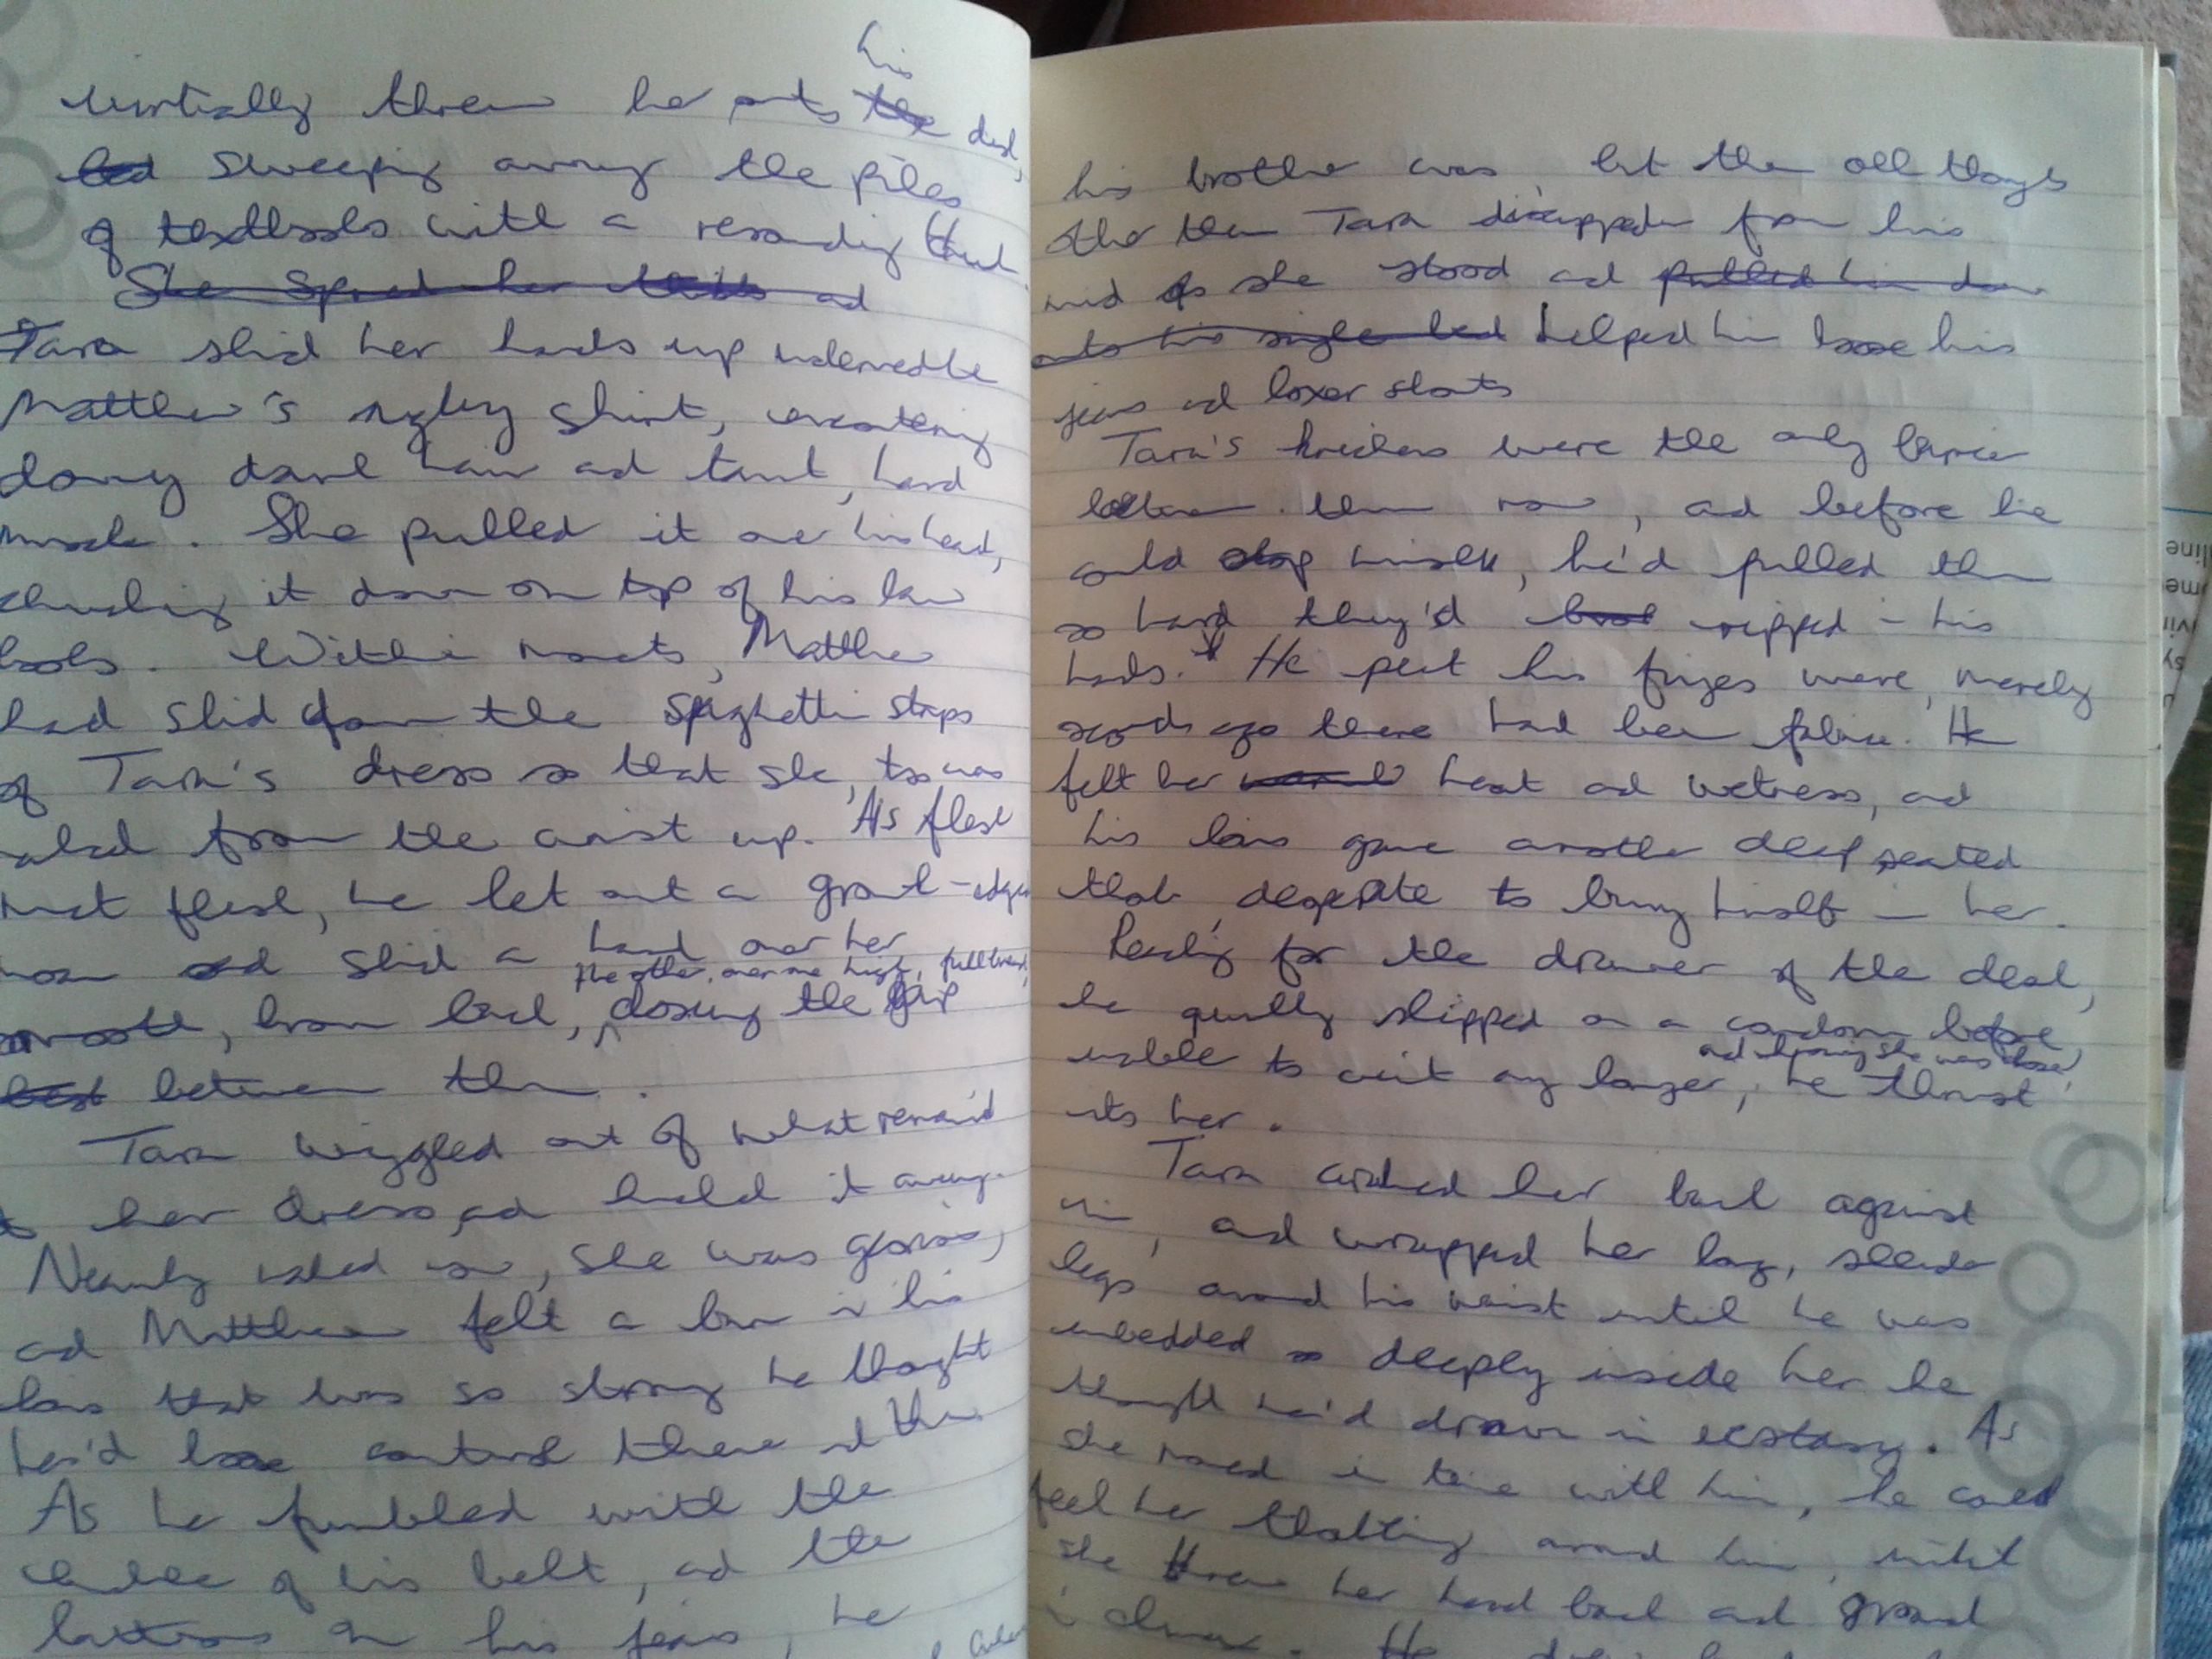 his
virtually threw her onto the desk,
bed sweeping away the piles
of textbooks with a resounding thud
She spread her and
Tara slid her hands up underneath
Matthew's rugby shirt,
downy dark hair and taut, hard
muscle. She pulled it over his head,
chucking it down on top of his law
books. Within moments, Matthew
had slid down the spaghetti straps
of Tara's dress so that she, too was
naked from the waist up. As flesh
met flesh, he let out a groan-edged
moan and slid a hand over her
the other over one high, full breast,
smooth, brown back, closing the gap
between them.
Tara wriggled out of what remained
of her dress and hurled it away.
Nearly naked now, she was glorious,
and Matthew felt a burn in his
loins that was so strong he thought
he'd lose control there and then.
As he fumbled with the
buckle of his belt, and the
buttons on his jeans, he
his brother was, but then all thoughts
other than Tara disappeared from his
mind as she stood and pulled him down
onto his single bed helped him lose his
jeans and boxer shorts
Tara's knickers were the only barrier
between them now, and before he
could stop himself, he'd pulled them
so hard they'd ripped in his
hands. He put his fingers where, merely
seconds ago there had been fabric. He
felt her heat and wetness, and
his loins gave another deep seated
throb, desperate to bury himself in her.
Reaching for the drawer of the desk,
he quickly slipped on a condom before
and sensing she was close,
unable to wait any longer, he thrust
into her.
Tara arched her back against
him, and wrapped her long, slender
legs around his waist until he was
embedded so deeply inside her he
thought he'd drown in ecstasy. As
she moved in time with him, he could
feel her throbbing around him, until
she threw her head back and groaned
in climax. He